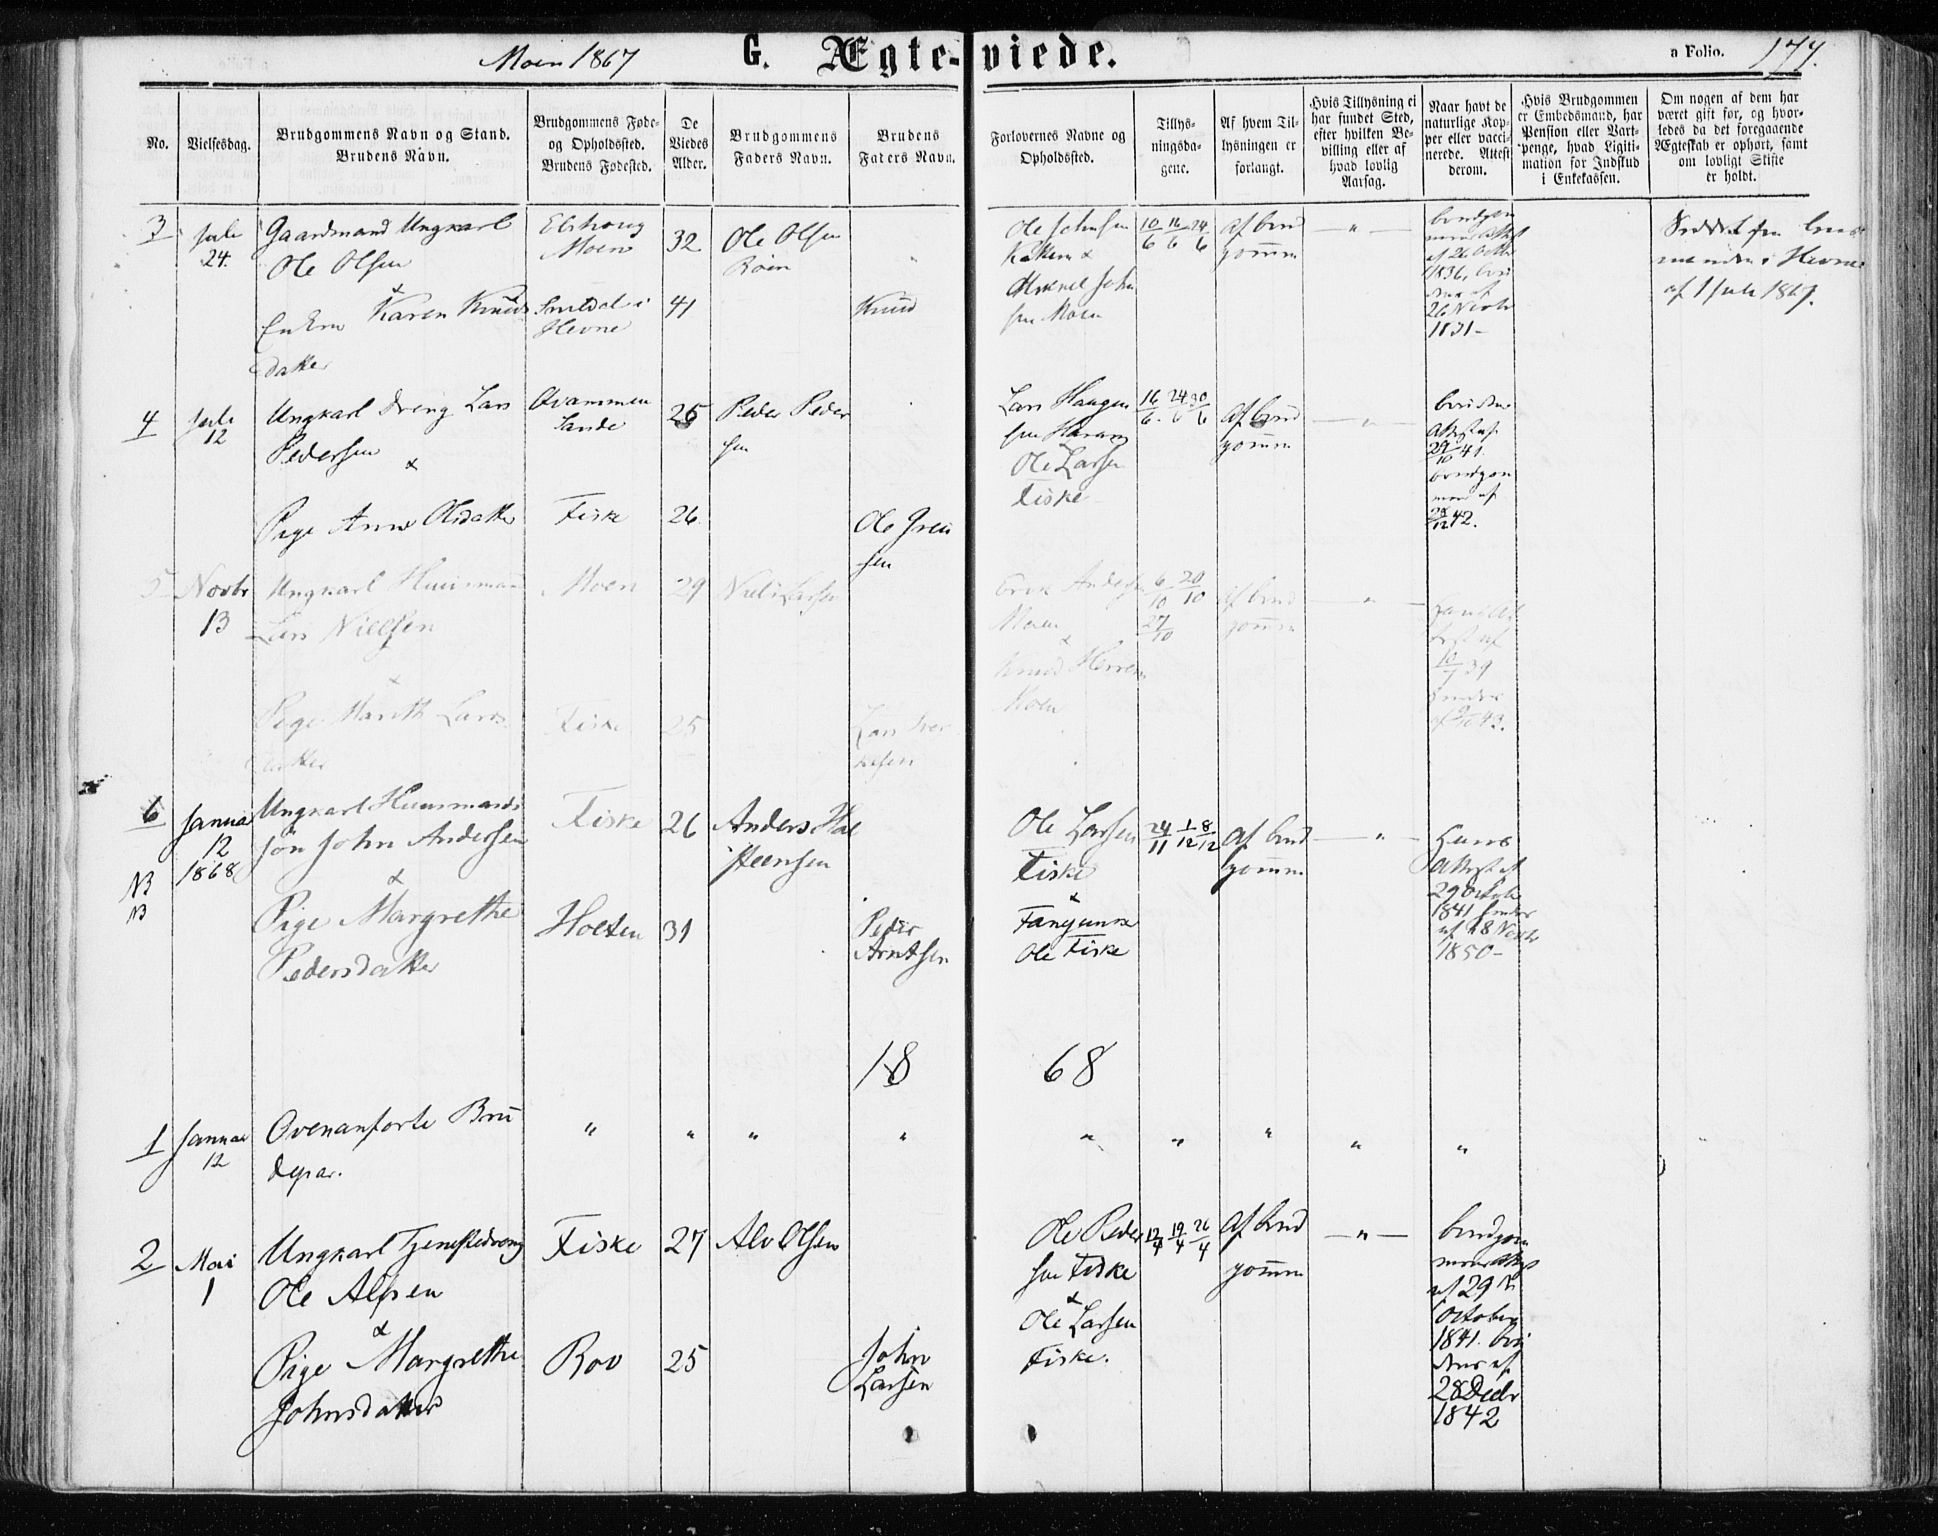 Moen 1867 G. Ægte-viede. a Folio. 177.
No.
Vielsesdag.
Brudgommens Navn og Stand.
Brudens Navn.
Brudgommens Føde-
og Opholdssted.
Brudens Fødested.
De
Viedes
Alder.
Brudgommens
Faders Navn.
Brudens
Faders Navn.
Forlovernes Navne og
Opholdssted.
Tillys-
ningsda-
gene.
Af hvem Til-
lysningen er
forlangt.
Hvis Tillysning ei
har fundet Sted,
efter hvilken Be-
villing eller af
hvad lovlig
Aarsag.
Naar havt de
naturlige Kop-
per eller vacci-
nerede. Attest
derom.
Hvis Brudgommen
er Embedsmand, har
Pension eller Vart-
penge, hvad Ligiti-
mation for Indskud
i Enkekassen.
Om nogen af dem har
været gift før, og hvor-
ledes da det foregaaende
Ægteskab er ophørt, samt
om lovligt Skifte
er holdt.
3
Juli
24.
Gaardmand Ungkarl
Ole Olsen
&
Karen Knuds
datter
Moen
Hevne
32
41
Ole Olsen
Knud
Ole Johnsen
&
sen Moen
10/6 16/6 24/6
af brud
gomm
— " —
af 26 Octbr
1836,
26 Novbr
1831 -
i Hevne
af 1 Juli 1867.
4
Juli
12
Ungkarl Dreng Lars
Pedersen
&
Pige Anne Olsdatter
Sande
Fiske
25
26
Peder Peder
sen
Ole
sen
Lars Haugen
Ole Larsen
Fiske
16/6 24/6 30/6
af brud
gomm
— " —
29/10 41.
28/12 42.
5
Novbr
13
Ungkarl Huusmand
Lars Nielsen
&
Pige Marith Lars
datter
Moen
Fiske
29
25
Niels Larsen
Lars
Anders
Moen
&
Knud
Moen
6/10 20/10
27/10
af brud
gomm
— " —
10/7 39
6
Januar
12
1868
NB
NB
Ungkarl Huusmands
søn John Andersen
&
Pige Margrethe
Pedersdatter
Fiske
Holten
26
31
Anders Hal
steensen
Peder
Arntsen
Ole Larsen
Fiske
&
Ole Fiske
24/11 1/12 8/12
Af brud
gomm
— " —
Hans
Attest af
29 October
1841 hendes
af 28 Novbr
1850 -
18 68
1
Januar
12
Ovenanførte Bru
depar.
" " " " " " " " "
2
Mai
1
Ungkarl Tjenestedreng
Ole Alfsen
&
Pige Margrethe
Johnsdatter
Fiske
Rov
27
25
Alv Olsen
John
Larsen
Ole Peder
sen Fiske
&
Ole Larsen
Fiske.
12/4 19/4 26/4
Af brud
gomm
— " —
brudgom
mens Attest
af 29 de
October
1841. bru
dens af
28 Decbr
1842